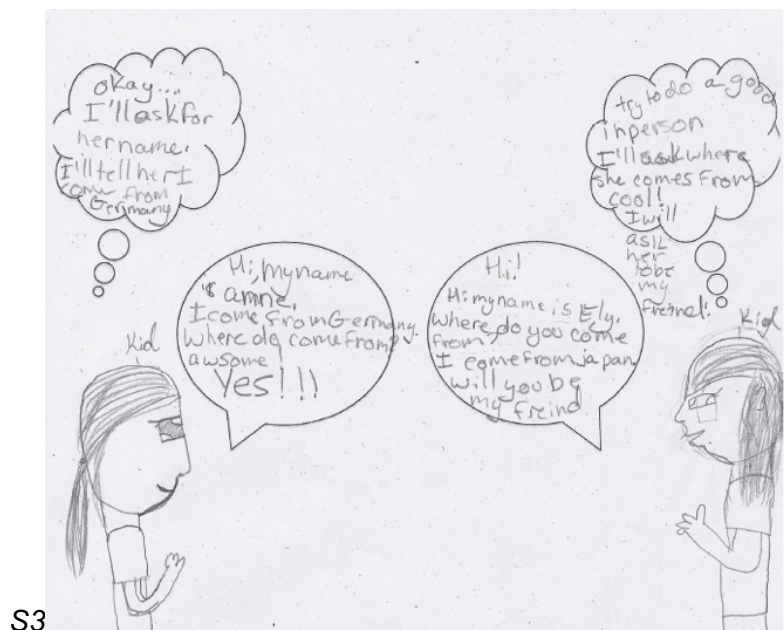 okay...
I'll ask for
her name.
I'll tell her I
come from
Germany
try to do a good
inperson
I'll ask where
she comes from
cool!
I will
ask
her
to be
my
freind!
Hi, my name
is anne.
I come from Germany
where do come from?
awsome
Yes!!!
Hi!
Hi my name is Ely.
where do you come
from?
I come from japan.
will you be
my freind
Kid
Kid
S3